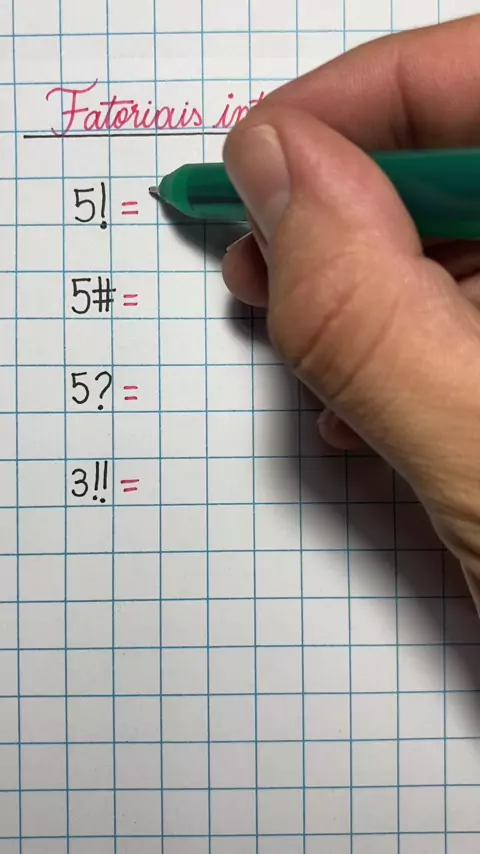 Fatoriais
5! =
5# =
5? =
3!! =